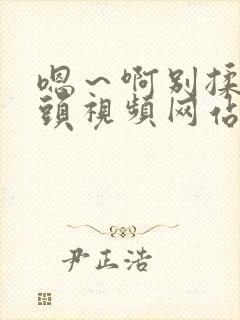 嗯～啊别揉
頭視頻网佔
尹正浩